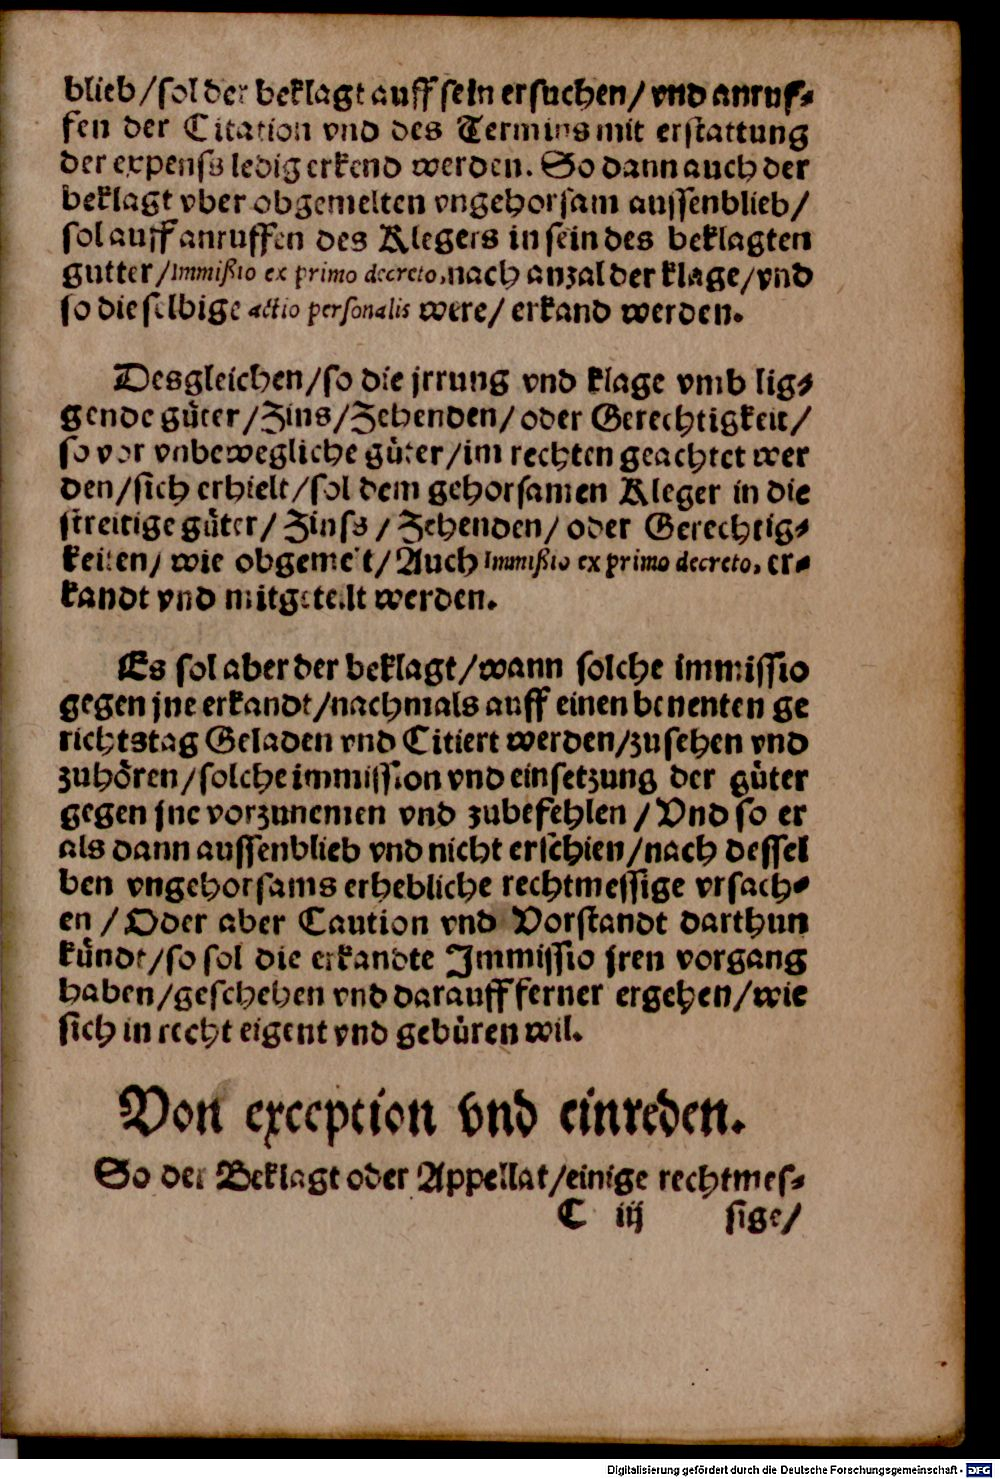 blieb/sol der beklagt auff sein ersuchen/ vnd anruf-
fen der Citation vnd des Termins mit erstattung
der expenss ledig erkend werden. So dann auch der
beklagt vber obgemelten vngehorsam aussenblieb/
sol auff anruffen des Klegers in sein des beklagten
gutter/Immißio ex primo decreto, nach anzal der klage/vnd
so die selbige actio personalis were/ erkand werden.
Desgleichen/so die jrrung vnd klage vmb lig-
gende güter/Zins/Zehenden/ oder Gerechtigkeit/
so vor vnbewegliche güter/im rechten geachtet wer
den/sich erhielt/sol dem gehorsamen Kleger in die
streitige güter/ Zinss/ Zehenden/ oder Gerechtig-
keiten/ wie obgemelt/Auch Immißio ex primo decreto, er-
kandt vnd mitgeteilt werden.
Es sol aber der beklagt/wann solche immissio
gegen jne erkandt/nachmals auff einen benenten ge
richtstag Geladen vnd Citiert werden/zusehen vnd
zuhören/solche immission vnd einsetzung der güter
gegen jne vorzunemen vnd zubefehlen/Vnd so er
als dann aussenblieb vnd nicht erschien/nach dessel
ben vngehorsams erhebliche rechtmessige vrsach-
en/Oder aber Caution vnd Vorstandt darthun
kündt/so sol die erkandte Immissio jren vorgang
haben/geschehen vnd darauff ferner ergehen/wie
sich in recht eigent vnd gebüren wil.
Von exception vnd einreden.
So der Beklagt oder Appellat/einige rechtmes-
C iij sige/
Digitalisierung gefördert durch die Deutsche Forschungsgemeinschaft - DFG